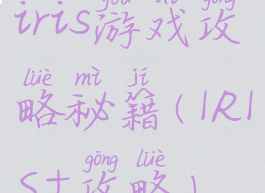 yóu xì gōng
iris游戏攻
lüè mì jí
略秘籍(IRI
gōng lüè
S十攻略)